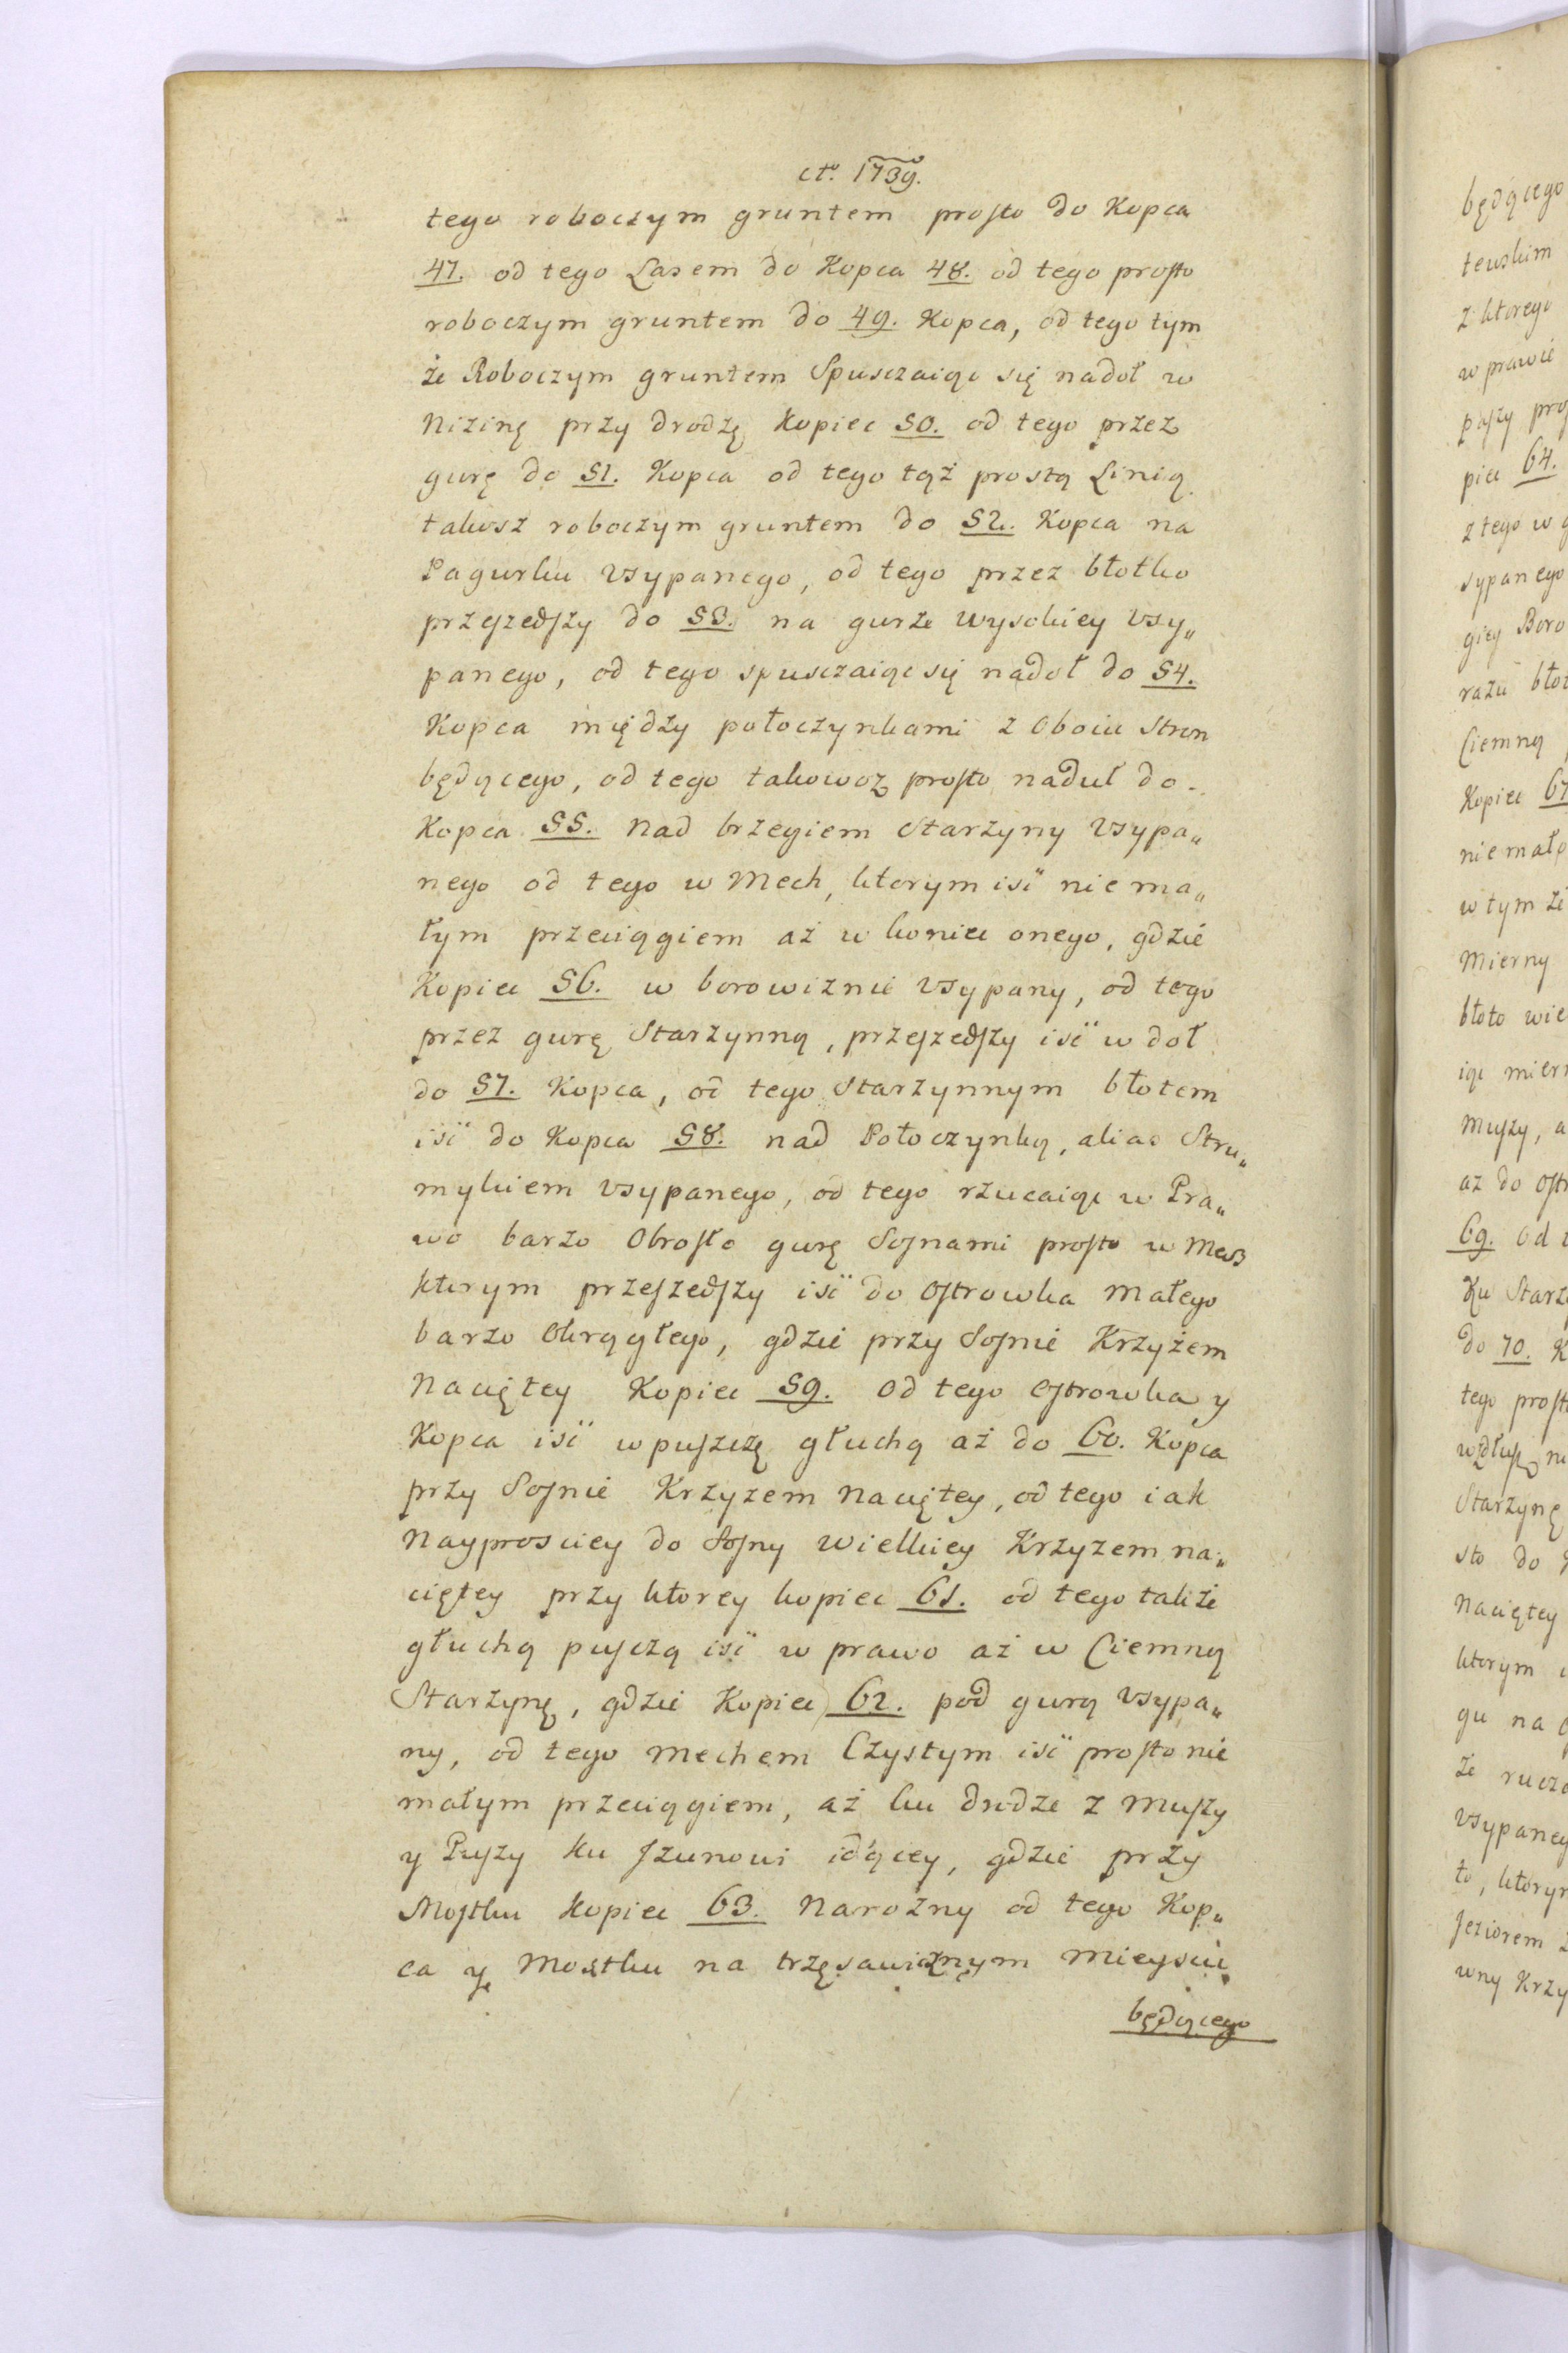 ct<sup>o</sup>. 1739.
tego roboczym gruntem prosto do Kopca
47. od tego Lasem do Kopca 48. od tego prosto
roboczym gruntem do 49. Kopca, od tego tym
że Roboczym gruntem Spusczaiąc się nadoł w
Nizinę przy drodzę Kopiec 50. od tego przez
gurę do 51. Kopca od tego tąż prostą Linią
takosz roboczym gruntem do 52. Kopca na
Pagurku usypanego, od tego przez błotko
przeszedszy do 53. na gurze wysokiey usy„
panego, od tego spusczaiąc się nadoł do 54.
Kopca między połoczynkami z oboiu stron
będącego, od tego takowoz prosto naduł do
Kopca 55. nad brzegiem Starzyny usypa„
nego od tego w Mech, ktorym isć nie ma„
łym przeciągiem aż w koniec onego, gdzie
Kopiec 56. w borowiznie usypany, od tego
przez gurę Starzynną, przeszedszy isć w doł
do 57. Kopca, od tego Starzynnym błotem
isć do Kopca 58. nad Połoczynką, alias Stru„
mykiem usypanego, od tego rzucaiąc w Pra„
wo barzo Obrosło gurę Sosnami prosto w Mech
ktorym przeszedszy isć do Ostrowka małego
barzo Okrągłego, gdzie przy Sosnie Krzyżem
Naciętey Kopiec 59. od tego Ostrowka y
Kopca isć w puszczę głuchą aż do 60. Kopca
przy Sosnie Krzyzem naciętey, od tego iak
Nayprosciey do Sosny wielkiey Krzyzem na„
ciętey przy ktorey kopiec 61. od tego także
głuchą pusczą isć w prawo aż w Ciemną
Starzynę, gdzie Kopiec 62. pod gurą usypa„
ny, od tego mechem Czystym isć prosto nie
małym przeciągiem, aż ku drodze z Muszy
y Puszy ku Jzunowi idącey, gdzie przy
Mostku kopiec 63. Narożny od tego Kop„
ca y Mostku na trzęsawiznym mieyscu
będącego
będącego
tewskim
z ktorego
w prawie
piec 64.
z tego w
sypanego
giey Boro
razu
Ciemną
Kopiec 67
nie mało
w tym że
Mierny
błoto wie
Muszy, a
aż do Ostr
69. od t
Ku Starz
do 70. K
tego prost
Starzynę
sto do
Naciętey
ktorym
gu na
że rucz
usypaneg
to, ktorym
Jeziorem
wny Krzy